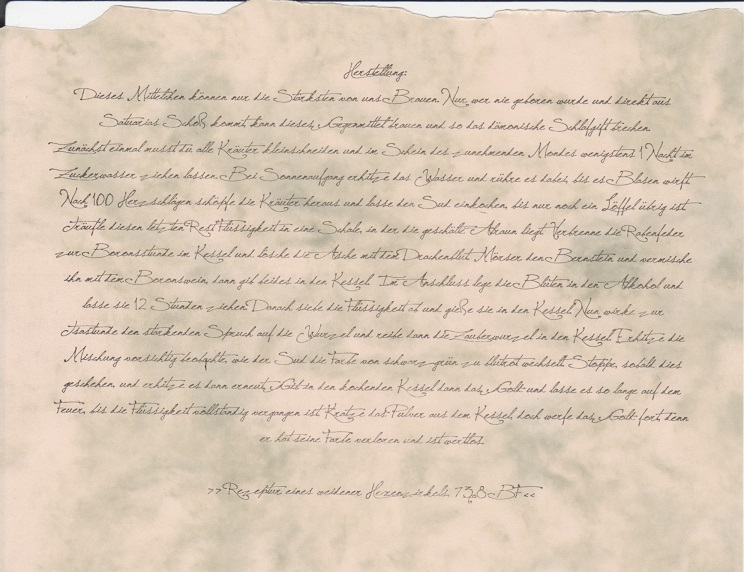 Herstellung:
Dieses Mittelchen können nur die Stärksten von uns Brauen. Nur wer nie geboren wurde und direkt aus
Satuarias Schoß kommt, kann dieses Gegenmittel brauen und so das dämonische Schlafgift brechen
Zunächst einmal musst du alle Kräuter kleinschneiden und im Schein des zunehmenden Mondes wenigstens 1 Nacht im
Zuckerwasser ziehen lassen. Bei Sonnenaufgang erhitze das Wasser und rühre es dabei, bis es Blasen wirft
Nach 100 Herzschlägen schöpfe die Kräuter heraus und lasse den Sud einkochen, bis nur noch ein Löffel übrig ist
Träufle diesen letzten Rest Flüssigkeit in eine Schale, in der die geschälte Alraun liegt. Verbrenne die Rabenfeder
zur Boronsstunde im Kessel und lösche die Asche mit dem Drachenblut. Mörser den Bernstein und vermische
ihn mit dem Boronswein, dann gib beides in den Kessel. Im Anschluss lege die Blüten in den Alkohol und
lasse sie 12 Stunden ziehen. Danach siebe die Flüssigkeit ab und gieße sie in den Kessel. Nun wirke zur
Tsastunde den stärkenden Spruch auf die Wurzel und reibe dann die Zauberwurzel in den Kessel. Erhitze die
Mischung vorsichtig beobachte, wie der Sud die Farbe von schwarz-grün zu blutrot wechselt. Stoppe, sobald dies
geschehen, und erhitze es dann erneut. Gib in den kochenden Kessel dann das Gold und lasse es so lange auf dem
Feuer, bis die Flüssigkeit vollständig vergangen ist. Kratze das Pulver aus dem Kessel, doch werfe das Gold fort, denn
er hat seine Farbe verloren und ist wertlos.
>>Rezeptur eines weidener Hexenzirkels, BF<<